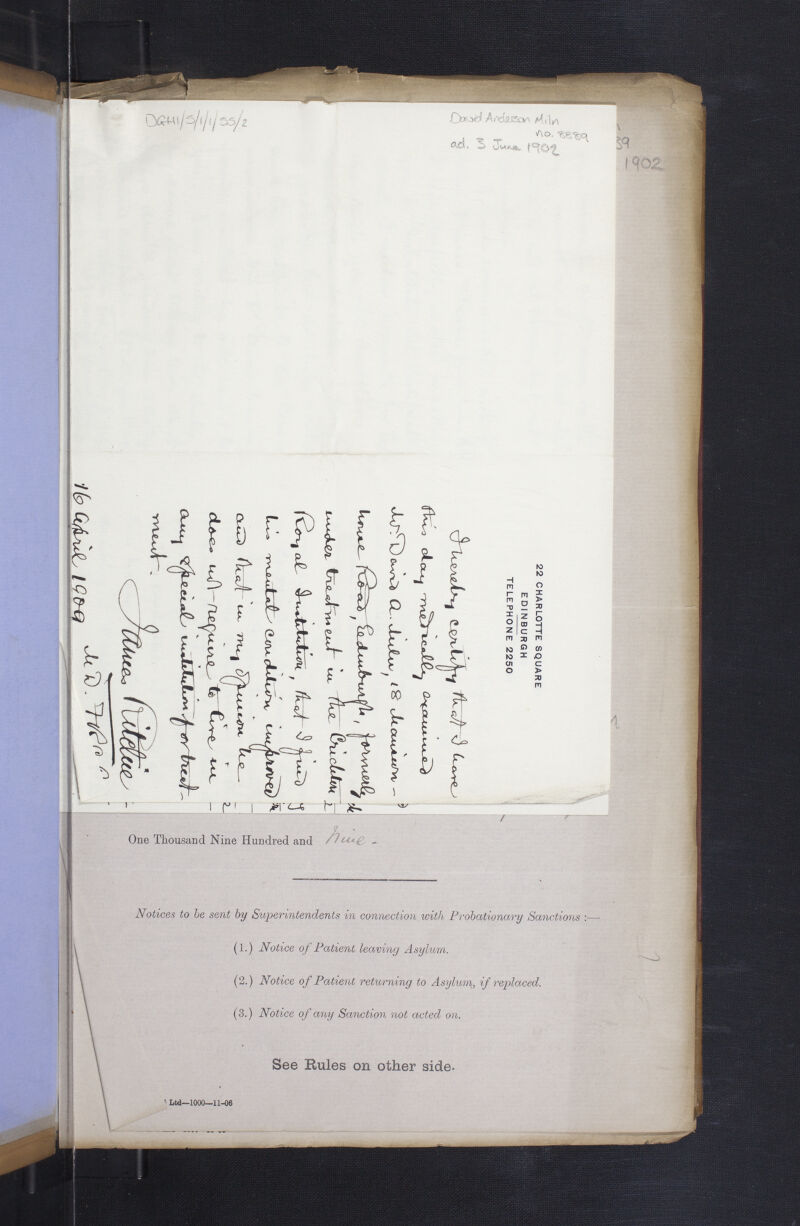 DGH1/5/1/1/55/2
David Anderson Miln
no. 8889
ad. 3 June 1902
39
1902
22 CHARLOTTE SQUARE
EDINBURGH
TELEPHONE 2250
I hereby certify that I have
this day medically examined
Mr. David A. Miln, 18 Mansion-
house Road, Edinburgh, formerly
under treatment in the Crichton
Royal Institution, that I find
his mental condition improved
and that in my opinion he
does not require to live in
any special institution for treat-
ment.
James Ritchie
M D.
16 April 1909
One Thousand Nine Hundred and Nine -
Notices to be sent by Superintendents in connection with Probationary Sanctions :—
(1.) Notice of Patient leaving Asylum.
(2.) Notice of Patient returning to Asylum, if replaced.
(3.) Notice of any Sanction not acted on.
See Rules on other side.
Ltd—1000—11-06